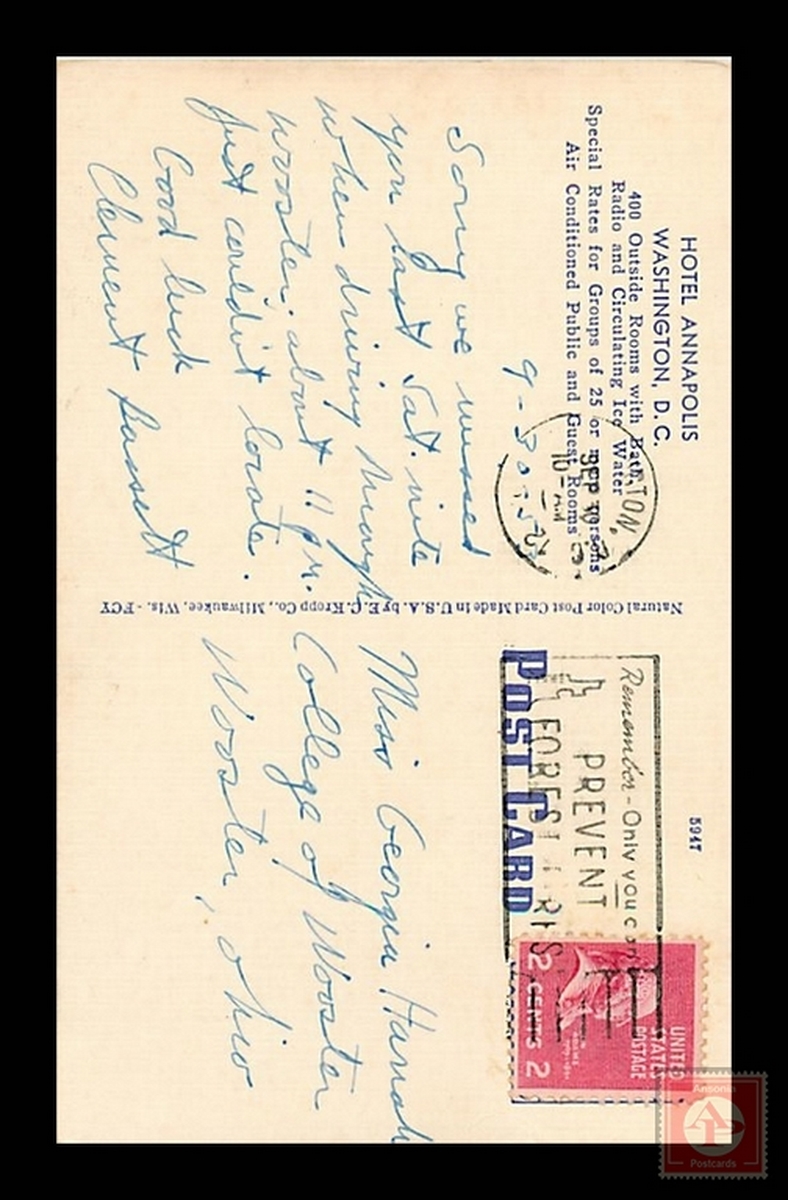 HOTEL ANNAPOLIS
WASHINGTON, D. C.
400 Outside Rooms with Bath,
Radio and Circulating Ice Water
Special Rates for Groups of 25 or more persons
Air Conditioned Public and Guest Rooms
TON,
SEP
10 - AM
9-30-52
Sorry we missed
you last Sat. nite
when driving through
Wooster about 11 P.M.
Just couldn't locate.
Good luck
Clement Bassett
Natural Color Post Card Made in U.S.A. by E. C. Kropp Co., Milwaukee, Wis. - FCY
5947
POST CARD
Remember - Only you can
PREVENT
FOREST FIRES
UNITED
STATES
POSTAGE
2 CENTS 2
Miss Georgia Hannah
College of Wooster
Wooster, Ohio
Ansonia
AP
Postcards